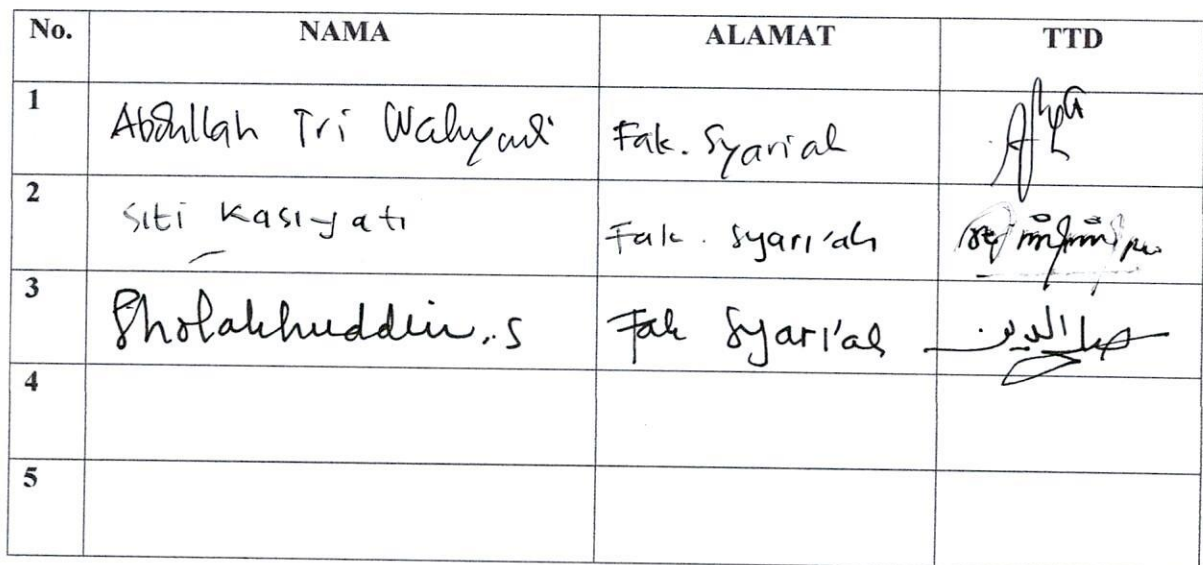 No. NAMA ALAMAT TTD
1 Abdullah Tri Wahyudi Fak. Syariah
2 Siti Kasiyati Fak. Syari'ah
3 Sholakhuddin.S Fak Syari'ah صلح الدين
4
5